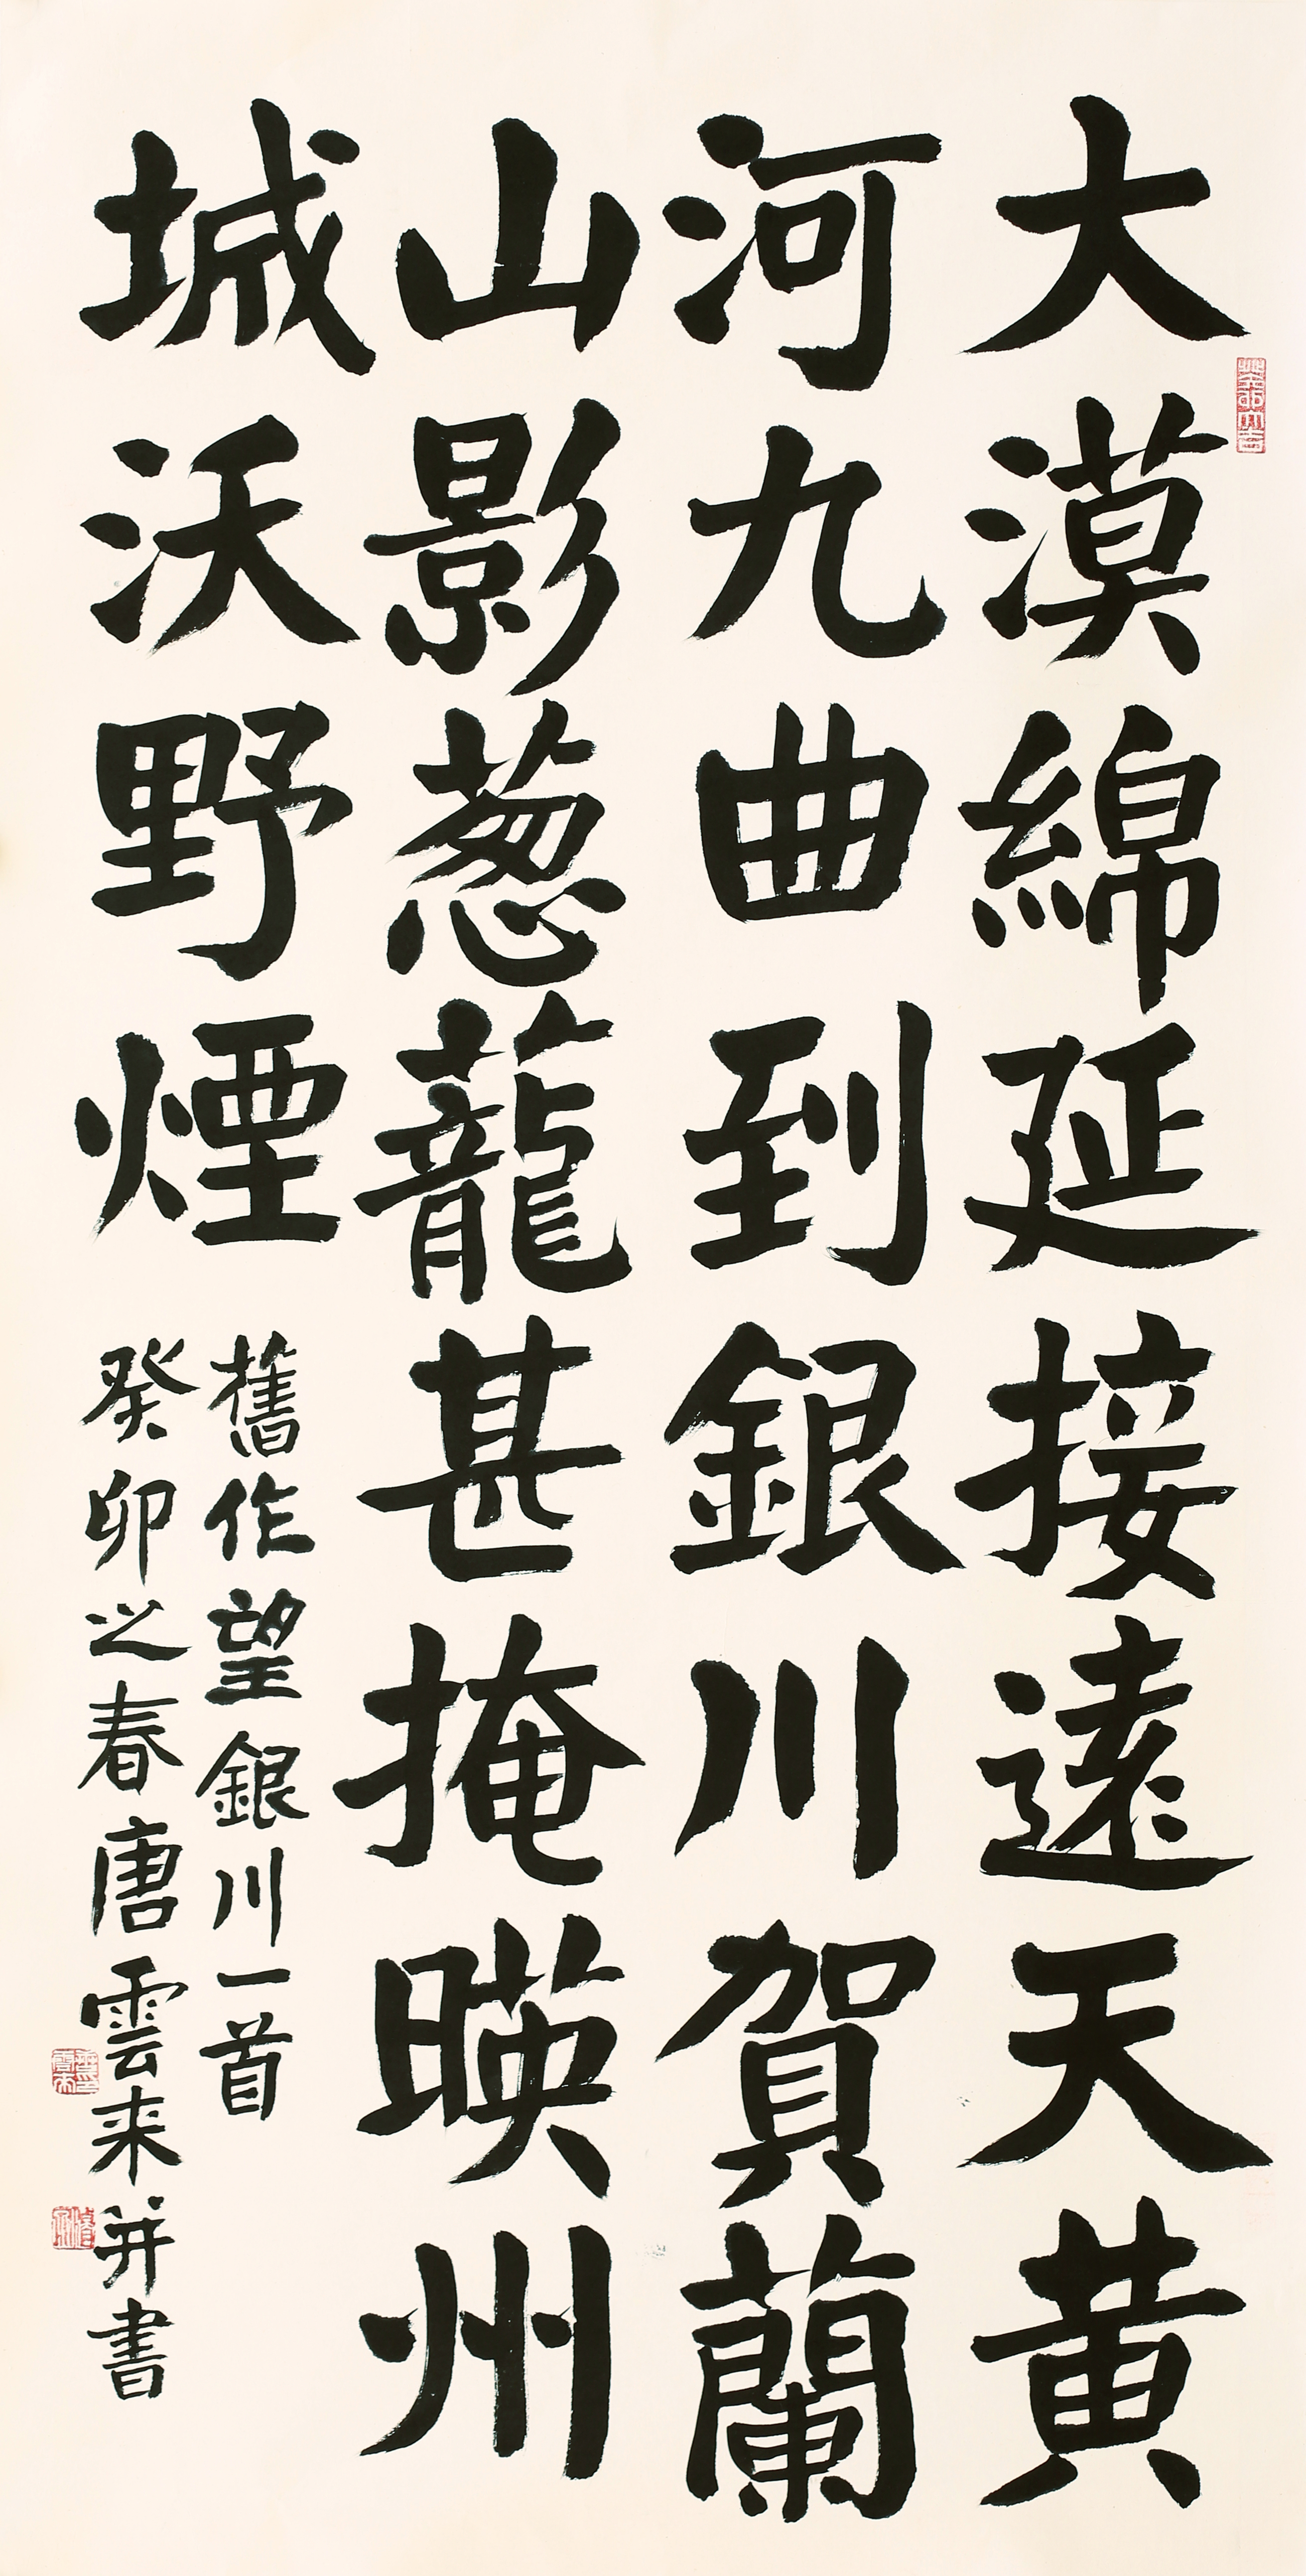 大漠綿延接遠天黄
河九曲到銀川賀蘭
山影葱蘢甚掩暎州
城沃野煙
舊作望銀川一首
癸卯之春唐雲来并書